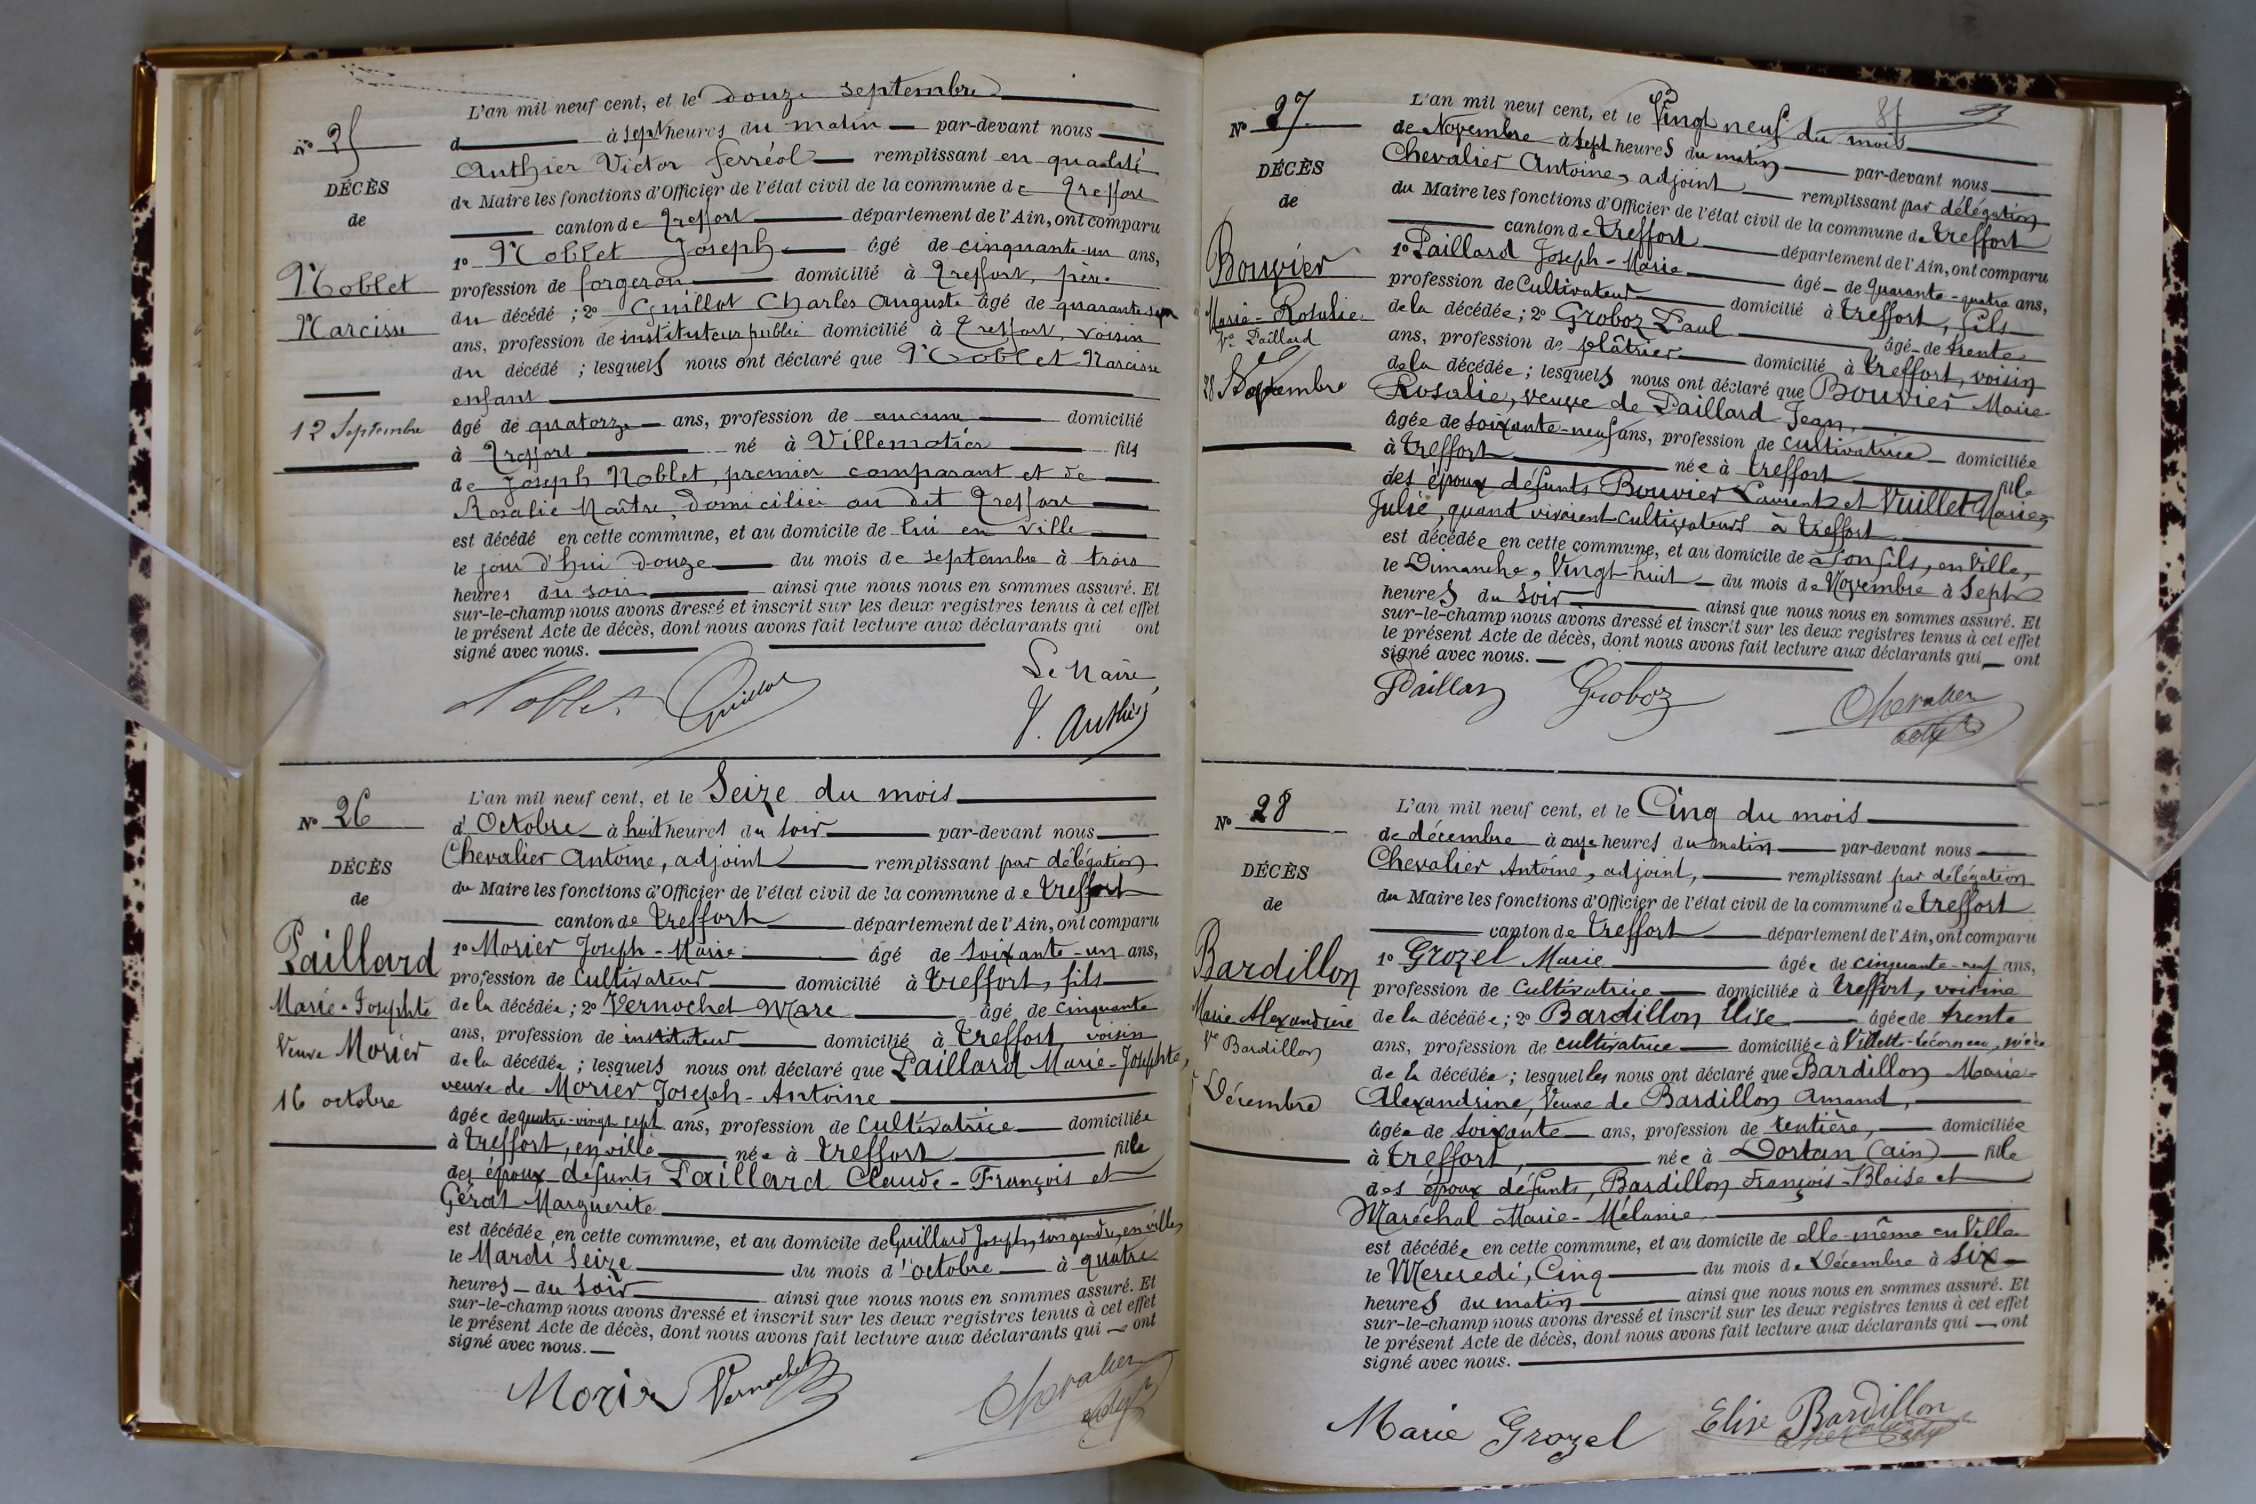 L'an mil neuf cent, et le douze septembre
Nº 25
d à sept heures du matin par-devant nous
Authier Victor ferréol remplissant en qualité
DÉCÈS
de Maire les fonctions d'Officier de l'état civil de la commune de Treffort
de
canton de Treffort département de l'Ain, ont comparu
1º Noblet Joseph âgé de cinquante-un ans,
Noblet
profession de forgeron domicilié à Treffort, père
Narcisse
du décédé ; 2º Guillot Charles Auguste âgé de quarante sept
ans, profession de instituteur public domicilié à Treffort, voisin
du décédé ; lesquels nous ont déclaré que Noblet Narcisse
enfant
12 Septembre
âgé de quatorze ans, profession de aucune domicilié
à Treffort né à Villemotier fils
de Joseph Noblet, premier comparant et de
Rosalie Maître, domiciliée au dit Treffort
est décédé en cette commune, et au domicile de lui en ville
le jour d'hui douze du mois de septembre à trois
heures du soir ainsi que nous nous en sommes assuré. Et
sur-le-champ nous avons dressé et inscrit sur les deux registres tenus à cet effet
le présent Acte de décès, dont nous avons fait lecture aux déclarants qui ont
signé avec nous.
Le Maire
Noblet Guillot V. Authier
L'an mil neuf cent, et le Seize du mois
Nº 26
d'Octobre à huit heures du soir par-devant nous
Chevalier Antoine, adjoint remplissant par délégation
DÉCÈS
du Maire les fonctions d'Officier de l'état civil de la commune de treffort
de
canton de treffort département de l'Ain, ont comparu
Paillard
1º Morier Joseph-Marie âgé de soixante-un ans,
profession de cultivateur domicilié à treffort, fils
Marie-Josephte
de la décédée ; 2º Vernochet Marc âgé de cinquante
ans, profession de instituteur domicilié à treffort, voisin
Veuve Morier
de la décédée ; lesquels nous ont déclaré que Paillard Marie-Josephte,
veuve de Morier Joseph-Antoine
16 octobre
âgée de quatre-vingt sept ans, profession de cultivatrice domiciliée
à treffort, en ville née à treffort fille
des époux défunts Paillard Claude-François et
Gérat Marguerite
est décédée en cette commune, et au domicile de Guillard Joseph, son gendre, en ville,
le Mardi Seize du mois d'octobre à quatre
heures du soir ainsi que nous nous en sommes assuré. Et
sur-le-champ nous avons dressé et inscrit sur les deux registres tenus à cet effet
le présent Acte de décès, dont nous avons fait lecture aux déclarants qui ont
signé avec nous.
Morier Vernochet Chevalier
adjt
L'an mil neuf cent, et le Vingt neuf du mois
Nº 27
de Novembre à sept heures du matin par-devant nous
Chevalier Antoine, adjoint remplissant par délégation
DÉCÈS
du Maire les fonctions d'Officier de l'état civil de la commune de treffort
de
canton de treffort département de l'Ain, ont comparu
Bouvier
1º Paillard Joseph-Marie âgé de quarante-quatre ans,
profession de Cultivateur domicilié à treffort, fils
Marie-Rosalie
de la décédée ; 2º Groboz Paul âgé de trente
Ve Paillard
ans, profession de plâtrier domicilié à treffort, voisin
28 Septembre
de la décédée ; lesquels nous ont déclaré que Bouvier Marie
Rosalie, veuve de Paillard Jean,
âgée de soixante-neuf ans, profession de cultivatrice domiciliée
à treffort née à treffort fille
des époux défunts Bouvier Laurent et Vuillet Marie
Julie, quand vivaient cultivateurs à treffort
est décédée en cette commune, et au domicile de son fils, en ville,
le Dimanche, Vingt huit du mois de Novembre à Sept
heures du soir ainsi que nous nous en sommes assuré. Et
sur-le-champ nous avons dressé et inscrit sur les deux registres tenus à cet effet
le présent Acte de décès, dont nous avons fait lecture aux déclarants qui ont
signé avec nous.
Paillard Groboz Chevalier
adjt
L'an mil neuf cent, et le Cinq du mois
Nº 28
de décembre à onze heures du matin par-devant nous
Chevalier Antoine, adjoint, remplissant par délégation
DÉCÈS
du Maire les fonctions d'Officier de l'état civil de la commune de treffort
de
canton de treffort département de l'Ain, ont comparu
Bardillon
1º Grozel Marie âgée de cinquante-neuf ans,
profession de cultivatrice domiciliée à treffort, voisine
Marie Alexandrine
de la décédée ; 2º Bardillon Elise âgée de trente
Ve Bardillon
ans, profession de cultivatrice domiciliée à nièce
de la décédée ; lesquelles nous ont déclaré que Bardillon Marie-
5 Décembre
Alexandrine, Veuve de Bardillon Amand,
âgée de soixante ans, profession de rentière, domiciliée
à treffort, née à Dortan (ain) fille
des époux défunts, Bardillon François-Blaise et
Maréchal Marie-Mélanie
est décédée en cette commune, et au domicile de elle-même en Ville
le Mercredi, Cinq du mois de Décembre à six
heures du matin ainsi que nous nous en sommes assuré. Et
sur-le-champ nous avons dressé et inscrit sur les deux registres tenus à cet effet
le présent Acte de décès, dont nous avons fait lecture aux déclarants qui ont
signé avec nous.
Marie Grozel Elise Bardillon
Chevalier adjt